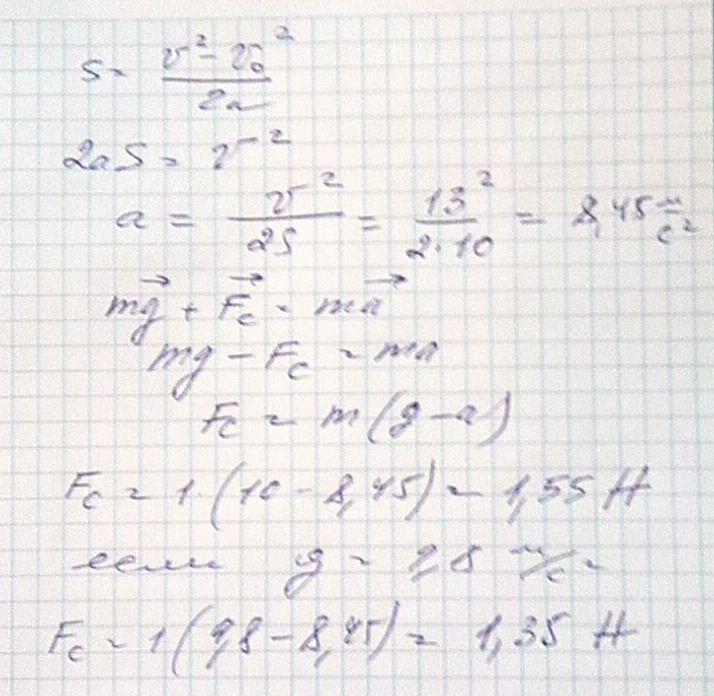 S = (v² - v₀²) / 2a
2aS = v²
a = v² / 2S = 13² / 2·10 = 8,45 м/с²
mg⃗ + F⃗c = ma⃗
mg - Fc = ma
Fc = m(g-a)
Fc = 1·(10 - 8,45) = 1,55 Н
если g = 9,8 м/с²
Fc = 1(9,8 - 8,45) = 1,35 Н